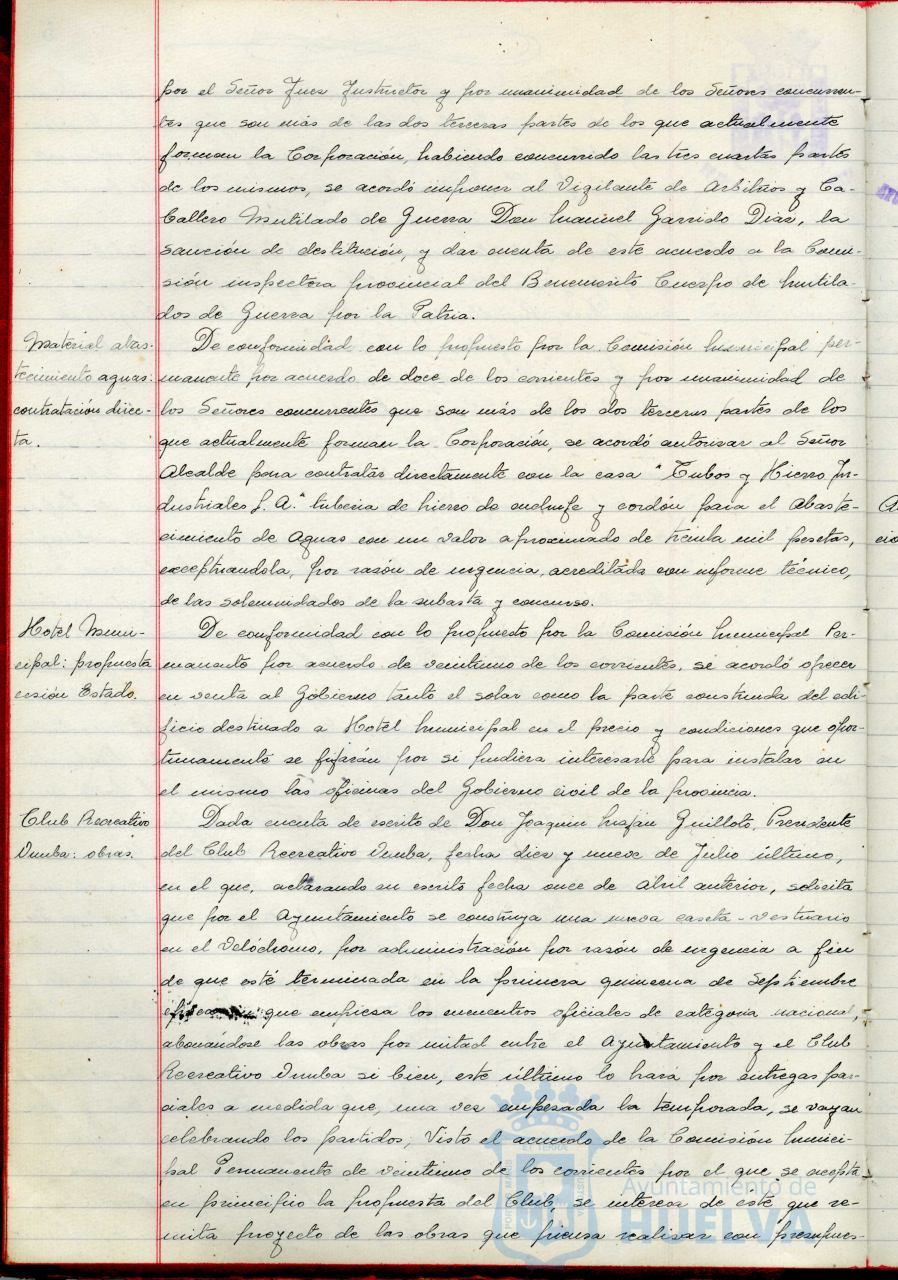 por el Señor Juez Instructor y por unanimidad de los Señores concurren-
tes que son más de las dos terceras partes de los que actualmente
forman la Corporación, habiendo concurrido las tres cuartas partes
de los mismos, se acordó imponer al Vigilante de Arbitrios y Ca-
ballero Mutilado de Guerra Don Manuel Garrido Diaz, la
sanción de destitución, y dar cuenta de este acuerdo a la Comi-
sión inspectora provincial del Benemérito Cuerpo de Mutila-
dos de Guerra por la Patria.
Material abas-
tecimiento aguas:
contratación direc-
ta.
De conformidad con lo propuesto por la Comisión Municipal per-
manente por acuerdo de doce de los corrientes y por unanimidad de
los Señores concurrentes que son más de los dos terceras partes de los
que actualmente forman la Corporación, se acordó autorizar al Señor
Alcalde para contratar directamente con la casa "Tubos y Hierro In-
dustriales S. A." tuberia de hierro de enchufe y cordón para el Abaste-
cimiento de Aguas con un valor aproximado de treinta mil pesetas,
exceptuandola, por razón de urgencia, acreditada con informe técnico,
de las solemnidades de la subasta y concurso.
Hotel Muni-
cipal: propuesta
cesión Estado.
De conformidad con lo propuesto por la Comisión Municipal Per-
manente por acuerdo de veintiuno de los corrientes, se acordó ofrecer
en venta al Gobierno tanto el solar como la parte construida del edi-
ficio destinado a Hotel Municipal en el precio y condiciones que opor-
tunamente se fijarán por si pudiera interesarle para instalar en
el mismo las oficinas del Gobierno civil de la provincia.
Club Recreativo
Onuba: obras.
Dada cuenta de escrito de Don Joaquin Guilloto, Presidente
del Club Recreativo Onuba, fecha diez y nueve de Julio último,
en el que, aclarando su escrito fecha once de Abril anterior, solicita
que por el Ayuntamiento se construya una nueva caseta-vestuario
en el Velódromo, por administración por razón de urgencia a fin
de que esté terminada en la primera quincena de Septiembre
que empieza los encuentros oficiales de categoria nacional,
abonándose las obras por mitad entre el Ayuntamiento y el Club
Recreativo Onuba si bien, este último lo hará por entregas par-
ciales a medida que, una vez empezada la temporada, se vayan
celebrando los partidos; Visto el acuerdo de la Comisión Munici-
pal Permanente de veintiuno de los corrientes por el que se acepta
en principio la propuesta del Club, se interesa de éste que re-
mita proyecto de las obras que piensa realizar con presupues-
Ayuntamiento de
HUELVA